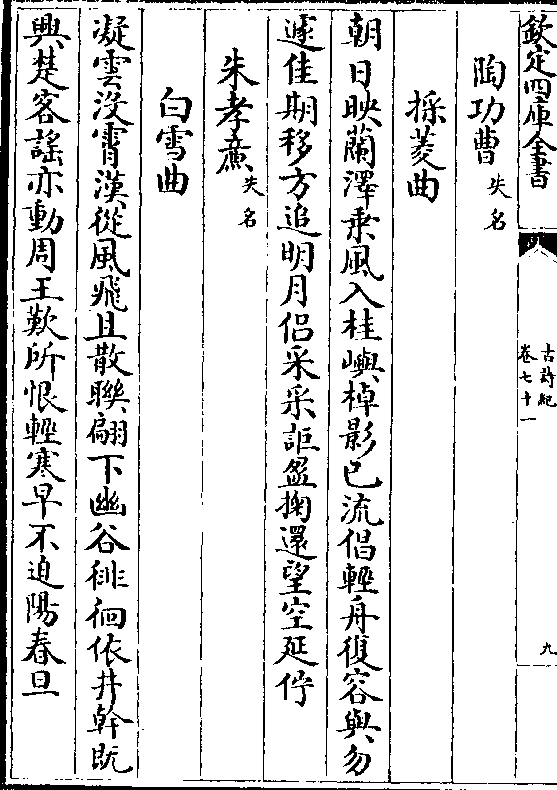 欽定四庫全書
古詩紀
卷七十一
九
陶功曹失名
採菱曲
朝日映蘭澤乗風入桂嶼棹影已流倡輕舟復容與勿
遽佳期移方追明月侣采采詎盈掬還望空延佇
朱孝㢘失名
白雪曲
凝雲没霄漢從風飛且散聯翩下幽谷徘徊依井幹既
興楚客謡亦動周王歎所恨輕寒早不迫陽春旦